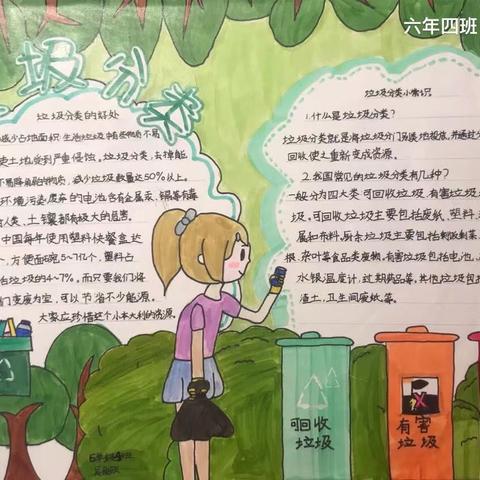 六年四班
垃圾分类
垃圾分类的好处
减少占地面积 生活垃圾中有些物质不易
使土地受到严重侵蚀。垃圾分类，去掉能
不易降解的物质，减少垃圾数量达50%以上。
环境污染 废弃的电池含有金属汞、镉等有毒
人类、土壤都有极大的危害。
中国每年使用塑料快餐盒达
方便面碗5~7亿个，塑料占
垃圾的4~7%。而只要我们将
们变废为宝，可以节省不少能源。
大家应珍惜这个小本大利的资源。
垃圾分类小常识
1.什么是垃圾分类？
垃圾分类就是将垃圾分门别类地投放，并通过分
回收使之重新变成资源。
2.我国常见的垃圾分类有几种？
一般分为四大类可回收垃圾，有害垃圾
圾。可回收垃圾主要包括废纸，塑料
属和布料。厨余垃圾主要包括剩饭剩菜
根、杂叶等食品类废物。有害垃圾包括电池、
水银温度计，过期药品等。其他垃圾包括
渣土，卫生间废纸等。
可回收
垃圾
有害
垃圾